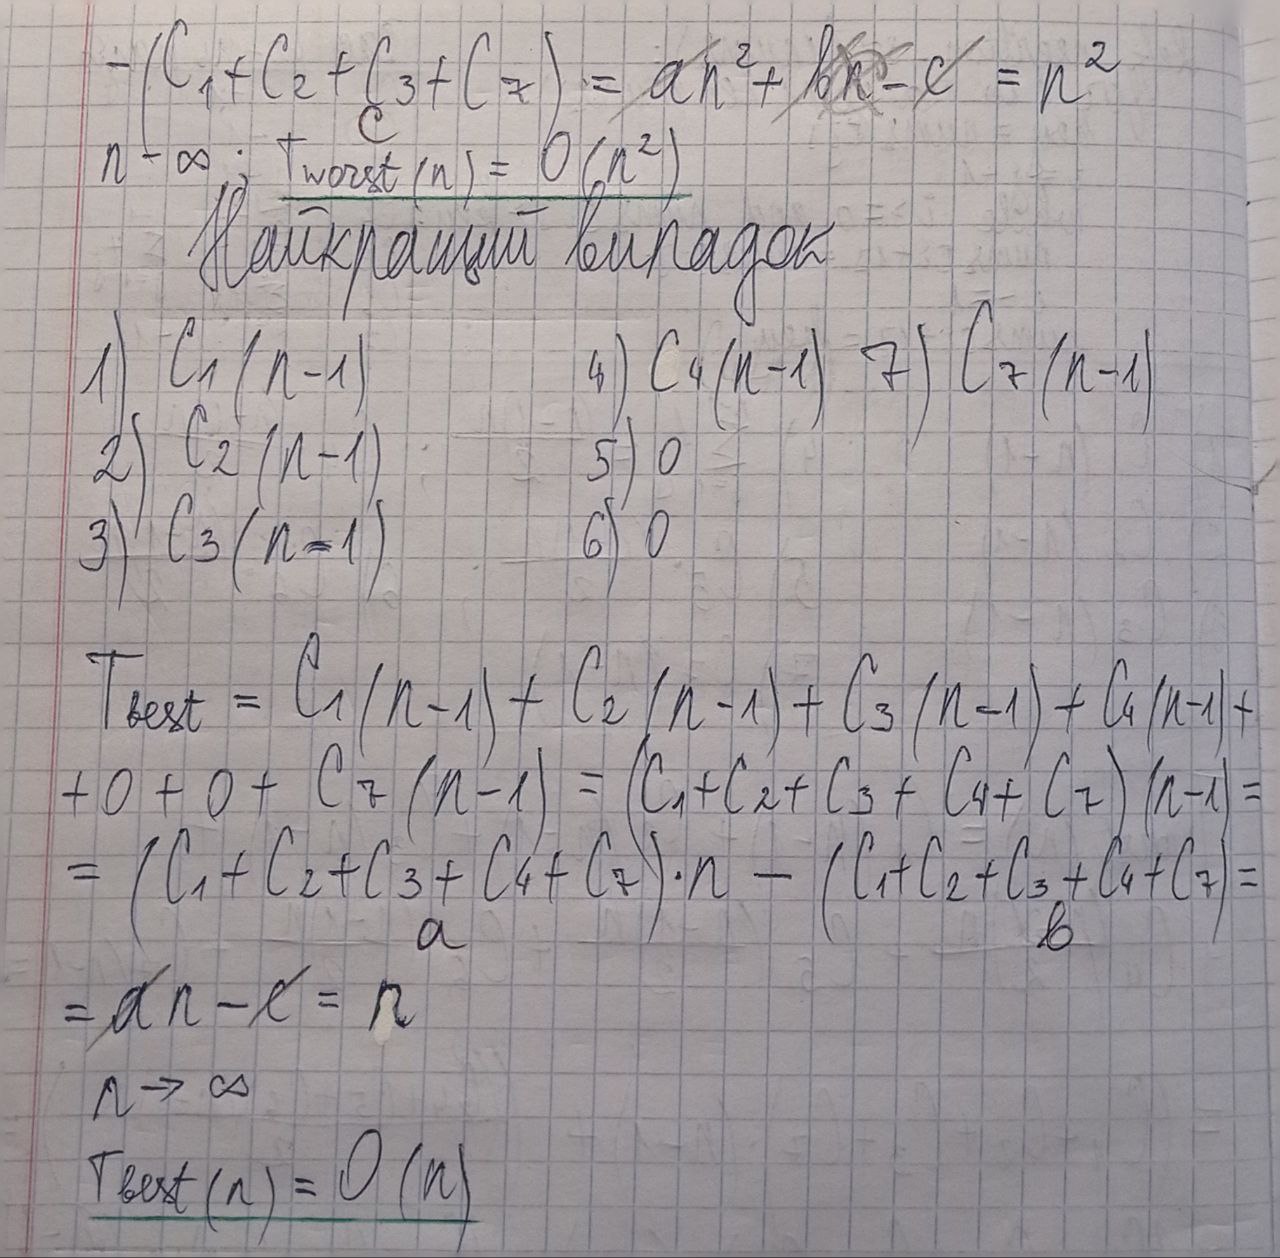 -(C₁+C₂+C₃+C₇) = an²+bn-c = n²
c
n-∞; Tworst(n) = O(n²)
Найкращий випадок
1) C₁(n-1) 4) C₄(n-1) 7) C₇(n-1)
2) C₂(n-1) 5) 0
3) C₃(n-1) 6) 0
Tbest = C₁(n-1) + C₂(n-1) + C₃(n-1) + C₄(n-1) +
+ 0 + 0 + C₇(n-1) = (C₁+C₂+C₃+C₄+C₇)(n-1) =
= (C₁+C₂+C₃+C₄+C₇)·n - (C₁+C₂+C₃+C₄+C₇) =
a b
= an - c = n
n → ∞
Tbest(n) = O(n)